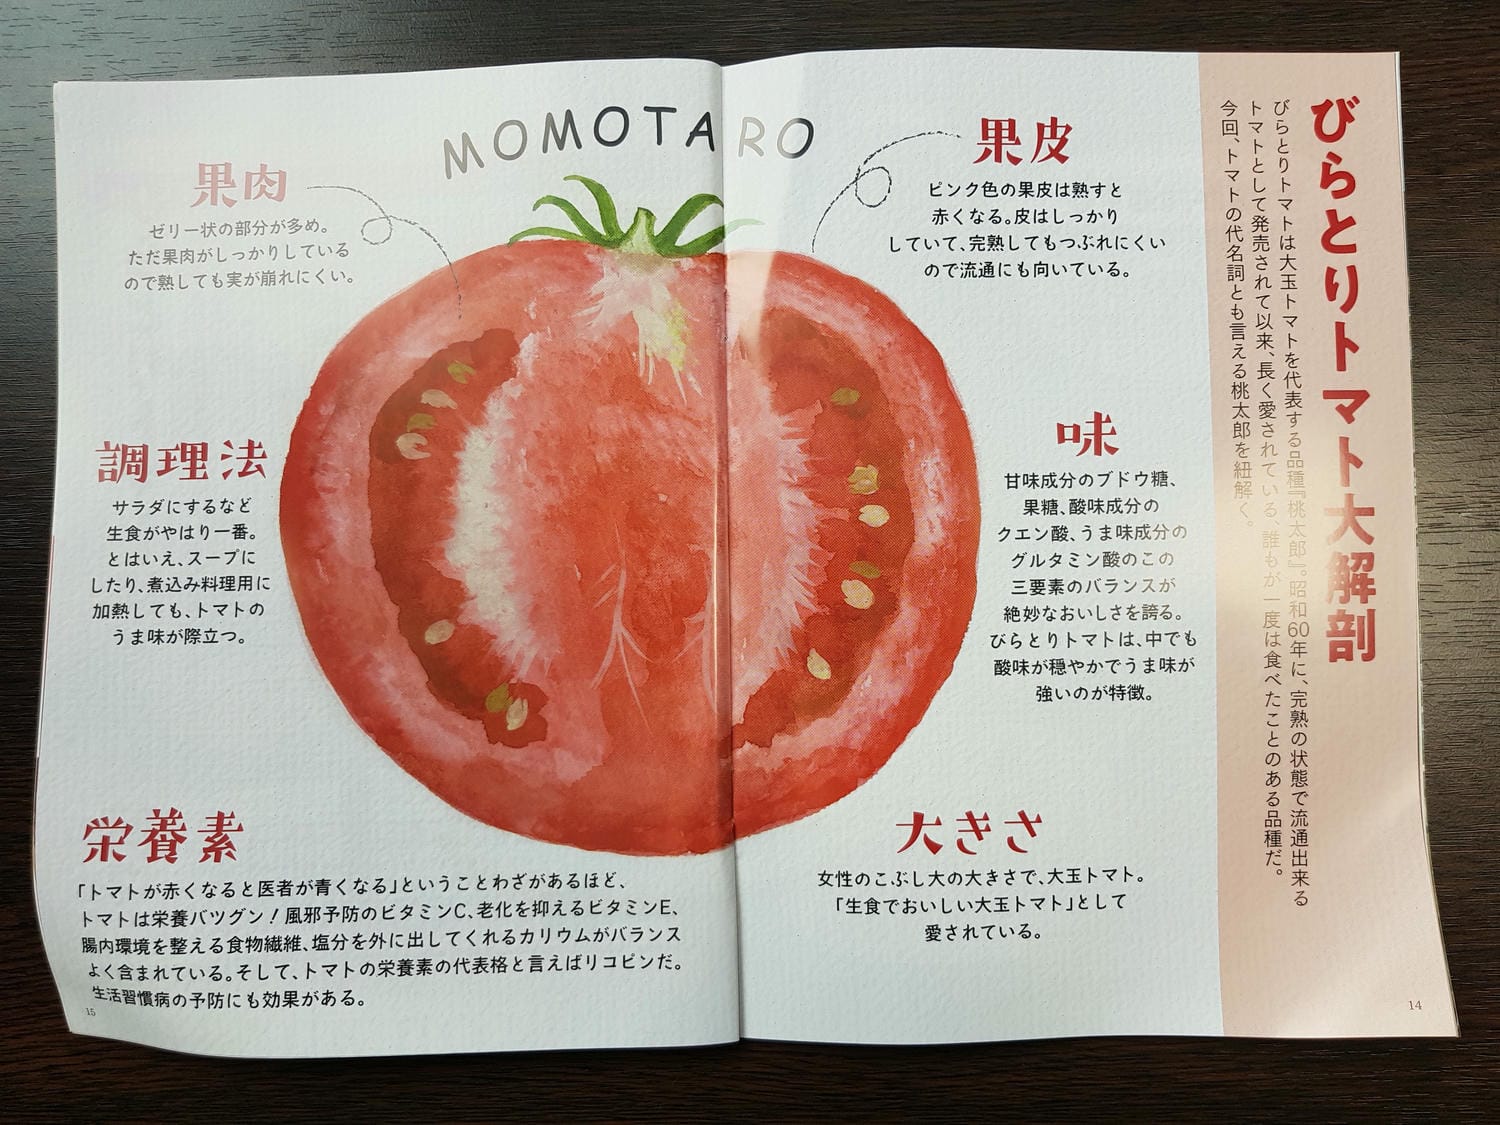 びらとりトマト大解剖
びらとりトマトは大玉トマトを代表する品種『桃太郎』。昭和60年に、完熟の状態で流通出来る
トマトとして発売されて以来、長く愛されている、誰もが一度は食べたことのある品種だ。
今回、トマトの代名詞とも言える桃太郎を紐解く。
MOMOTARO
果皮
ピンク色の果皮は熟すと
赤くなる。皮はしっかり
していて、完熟してもつぶれにくい
ので流通にも向いている。
味
甘味成分のブドウ糖、
果糖、酸味成分の
クエン酸、うま味成分の
グルタミン酸のこの
三要素のバランスが
絶妙なおいしさを誇る。
びらとりトマトは、中でも
酸味が穏やかでうま味が
強いのが特徴。
大きさ
女性のこぶし大の大きさで、大玉トマト。
「生食でおいしい大玉トマト」として
愛されている。
14
果肉
ゼリー状の部分が多め。
ただ果肉がしっかりしている
ので熟しても実が崩れにくい。
調理法
サラダにするなど
生食がやはり一番。
とはいえ、スープに
したり、煮込み料理用に
加熱しても、トマトの
うま味が際立つ。
栄養素
「トマトが赤くなると医者が青くなる」ということわざがあるほど、
トマトは栄養バツグン！風邪予防のビタミンC、老化を抑えるビタミンE、
腸内環境を整える食物繊維、塩分を外に出してくれるカリウムがバランス
よく含まれている。そして、トマトの栄養素の代表格と言えばリコピンだ。
生活習慣病の予防にも効果がある。
15